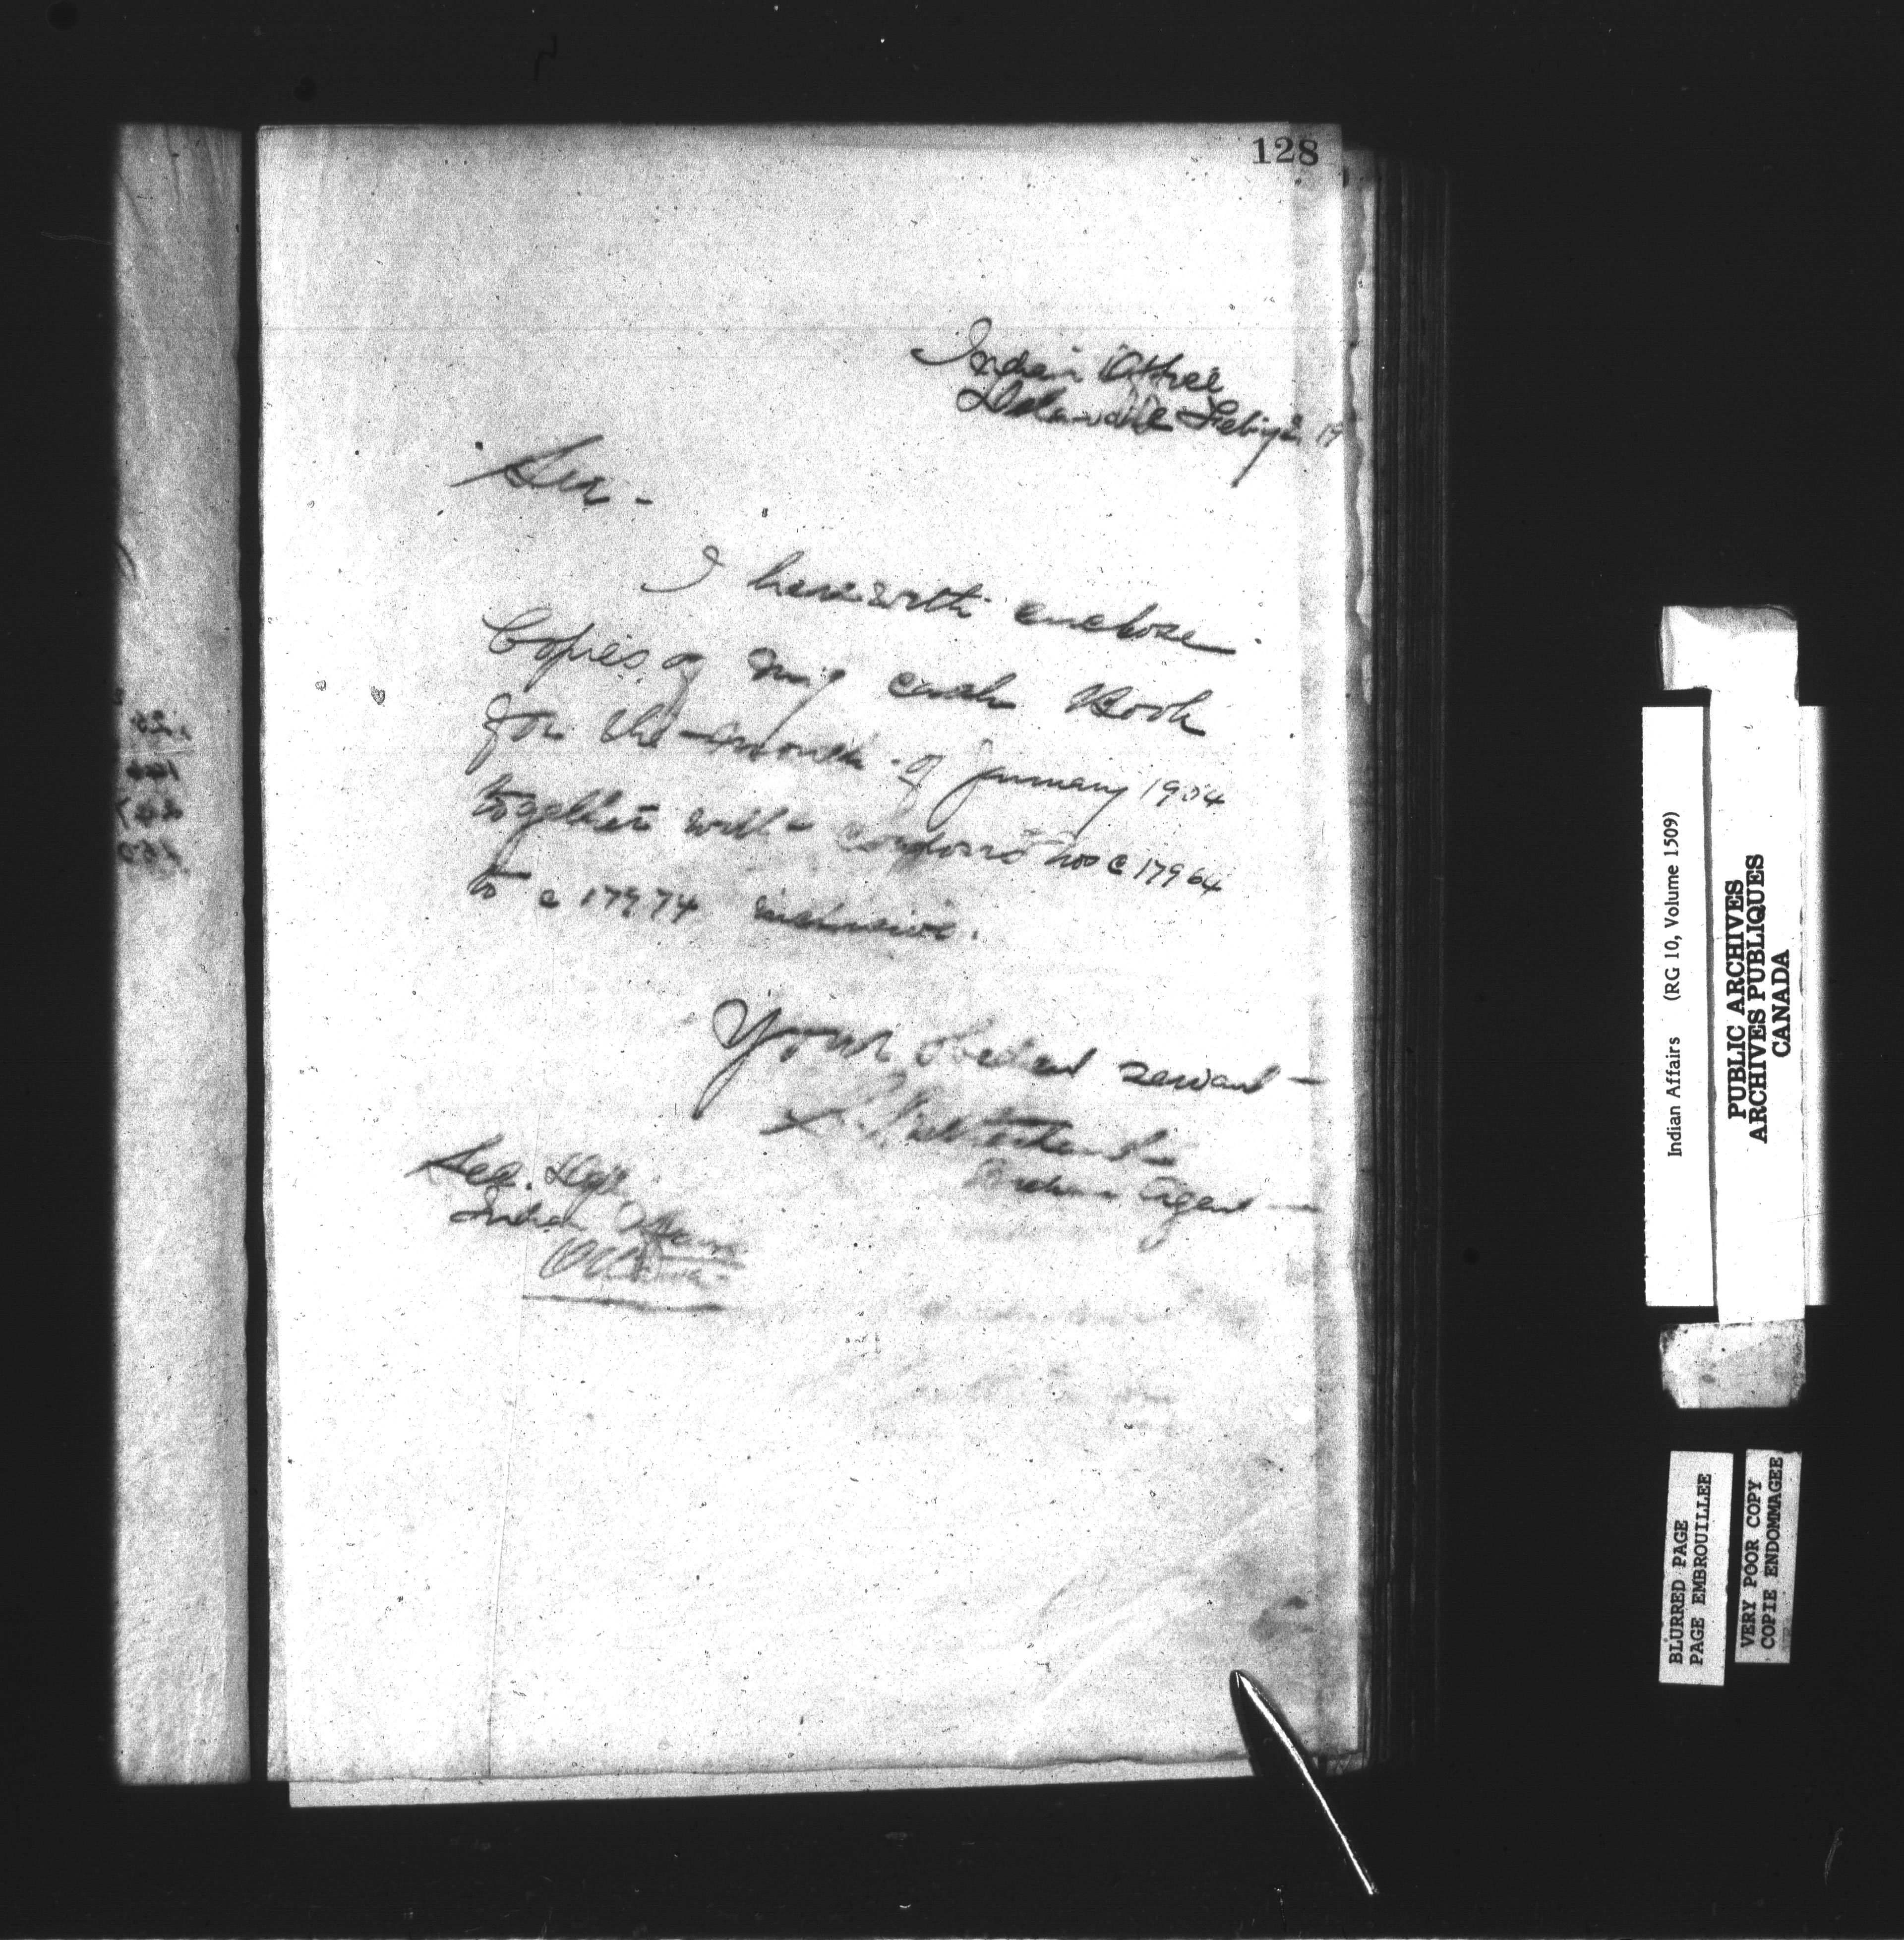 128
Indian Office
Delaware
Sir -
I herewith enclose
Copies of my cash Book
for the month of January 1904
together with nos c 17964
to c 17974 inclusive.
Your obedient servant
Indian Agent
Sec. Dept
Indian Affairs
Ottawa
Indian Affairs (RG 10, Volume 1509)
PUBLIC ARCHIVES
ARCHIVES PUBLIQUES
CANADA
BLURRED PAGE
PAGE EMBROUILLEE
VERY POOR COPY
COPIE ENDOMMAGEE